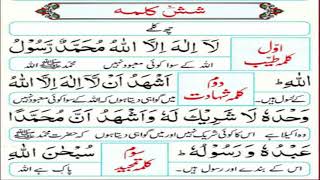 شش کلمہ
چھ کلمے
اوّل کلمہ طیّب لَآ اِلٰهَ اِلَّا اللهُ مُحَمَّدٌ رَّسُوْلُ
اللہ کے سوا کوئی معبود نہیں محمد ﷺ
اللهِ ؕ دوم کلمہ شہادت اَشْهَدُ اَنْ لَّآ اِلٰهَ اِلَّا اللهُ
اللہ کے رسول ہیں میں گواہی دیتا ہوں کہ اللہ کے سوا کوئی معبود نہیں
وَحْدَهٗ لَا شَرِيْكَ لَهٗ وَاَشْهَدُ اَنَّ مُحَمَّدًا
وہ اکیلا ہے اس کا کوئی شریک نہیں اور میں گواہی دیتا ہوں کہ حضرت محمد ﷺ
عَبْدُهٗ وَرَسُوْلُهٗ ؕ سوم کلمہ تمجید سُبْحٰنَ اللهِ
اس کے بندے اور رسول ہیں پاک ہے اللہ